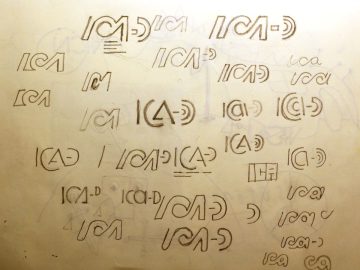 ICA-D ICA ICA-D
ICA ICA-D ica
ICA ICA ica
ICA-D ICa-D ICa-D
ICA-D ICA-D ICA-D ICA-D ICA ICa-D
ICA-D ICa-D ICA-D ica
ICA ICA-D ica-D
ica ca